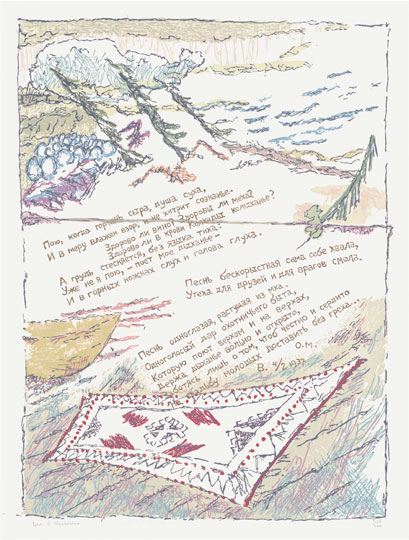 Пою, когда гортань сыра, душа суха,
И в меру влажен взор, и не хитрит сознанье.
Здорово ли вино? Здоровы ли меха?
Здорово ли в крови Колхиды колыханье?
А грудь стесняется, без языка тиха:
Уже не я пою, - поет мое дыханье -
И в горных ножнах слух и голова глуха.
Песнь бескорыстная сама себе хвала,
Утеха для друзей и для врагов смола.
Песнь одноглазая, растущая из мха,
Одноголосый дар охотничьего быта,
Которую поют верхом и на верхах,
Держа дыханье вольно и открыто,
Заботясь лишь о том, чтоб честно и сердито
На свадьбу молодых доставить без греха...
О.М.
В. 4/2 1937